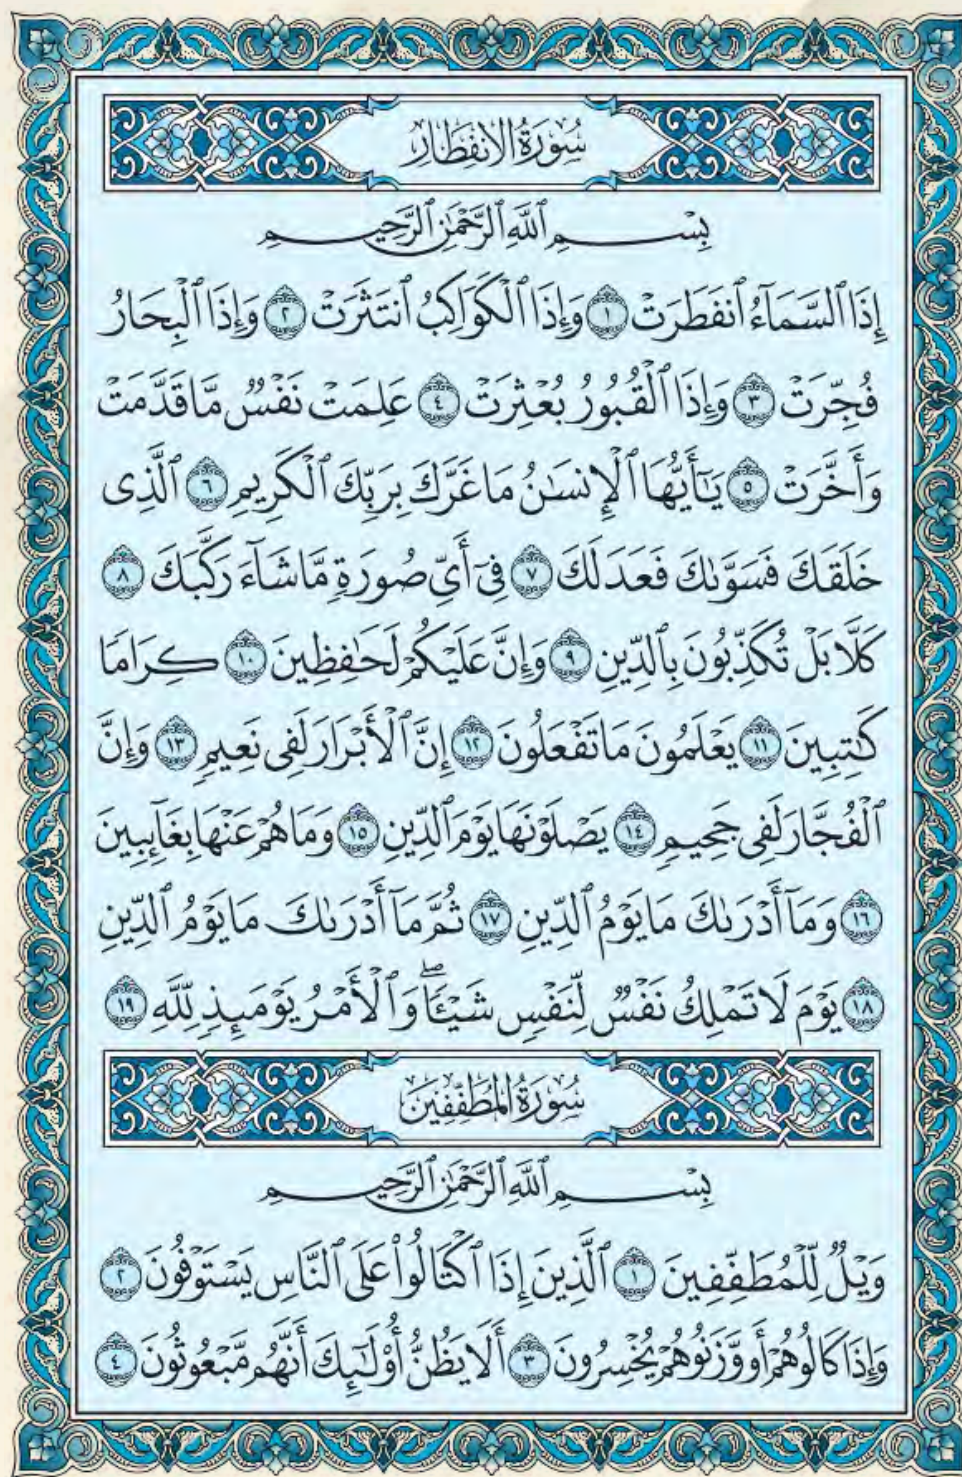 سُورَةُ الانفِطَارِ
بِسْمِ ٱللَّهِ ٱلرَّحْمَٰنِ ٱلرَّحِيمِ
إِذَا ٱلسَّمَآءُ ٱنفَطَرَتْ ١ وَإِذَا ٱلْكَوَاكِبُ ٱنتَثَرَتْ ٢ وَإِذَا ٱلْبِحَارُ
فُجِّرَتْ ٣ وَإِذَا ٱلْقُبُورُ بُعْثِرَتْ ٤ عَلِمَتْ نَفْسٌ مَّا قَدَّمَتْ
وَأَخَّرَتْ ٥ يَٰٓأَيُّهَا ٱلْإِنسَٰنُ مَا غَرَّكَ بِرَبِّكَ ٱلْكَرِيمِ ٦ ٱلَّذِى
خَلَقَكَ فَسَوَّىٰكَ فَعَدَلَكَ ٧ فِىٓ أَىِّ صُورَةٍ مَّا شَآءَ رَكَّبَكَ ٨
كَلَّا بَلْ تُكَذِّبُونَ بِٱلدِّينِ ٩ وَإِنَّ عَلَيْكُمْ لَحَٰفِظِينَ ١٠ كِرَامًا
كَٰتِبِينَ ١١ يَعْلَمُونَ مَا تَفْعَلُونَ ١٢ إِنَّ ٱلْأَبْرَارَ لَفِى نَعِيمٍ ١٣ وَإِنَّ
ٱلْفُجَّارَ لَفِى جَحِيمٍ ١٤ يَصْلَوْنَهَا يَوْمَ ٱلدِّينِ ١٥ وَمَا هُمْ عَنْهَا بِغَآئِبِينَ
١٦ وَمَآ أَدْرَىٰكَ مَا يَوْمُ ٱلدِّينِ ١٧ ثُمَّ مَآ أَدْرَىٰكَ مَا يَوْمُ ٱلدِّينِ
١٨ يَوْمَ لَا تَمْلِكُ نَفْسٌ لِّنَفْسٍ شَيْـًٔا ۖ وَٱلْأَمْرُ يَوْمَئِذٍ لِّلَّهِ ١٩
سُورَةُ المُطَفِّفِينَ
بِسْمِ ٱللَّهِ ٱلرَّحْمَٰنِ ٱلرَّحِيمِ
وَيْلٌ لِّلْمُطَفِّفِينَ ١ ٱلَّذِينَ إِذَا ٱكْتَالُوا۟ عَلَى ٱلنَّاسِ يَسْتَوْفُونَ ٢
وَإِذَا كَالُوهُمْ أَو وَّزَنُوهُمْ يُخْسِرُونَ ٣ أَلَا يَظُنُّ أُو۟لَٰٓئِكَ أَنَّهُم مَّبْعُوثُونَ ٤